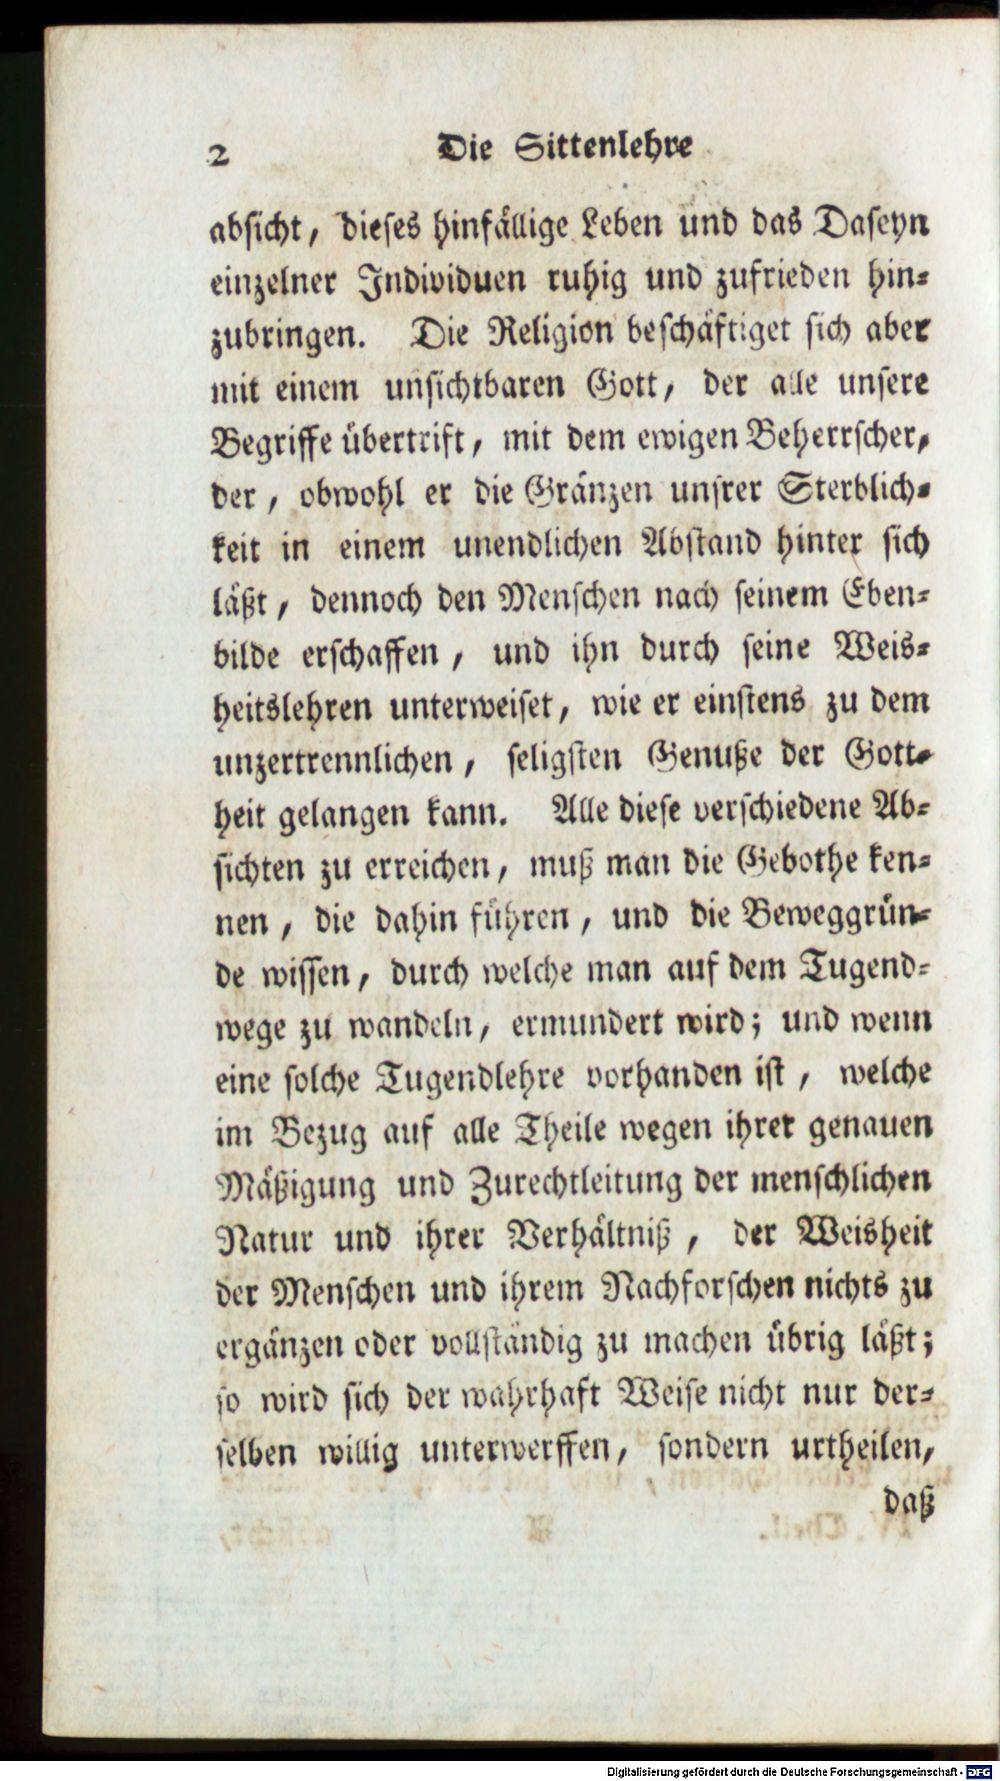 2 Die Sittenlehre
absicht, dieses hinfällige Leben und das Daseyn
einzelner Individuen ruhig und zufrieden hin-
zubringen. Die Religion beschäftiget sich aber
mit einem unsichtbaren Gott, der alle unsere
Begriffe übertrift, mit dem ewigen Beherrscher,
der, obwohl er die Gränzen unsrer Sterblich-
keit in einem unendlichen Abstand hinter sich
läßt, dennoch den Menschen nach seinem Eben-
bilde erschaffen, und ihn durch seine Weis-
heitslehren unterweiset, wie er einstens zu dem
unzertrennlichen, seligsten Genuße der Gott-
heit gelangen kann. Alle diese verschiedene Ab-
sichten zu erreichen, muß man die Gebothe ken-
nen, die dahin führen, und die Beweggrün-
de wissen, durch welche man auf dem Tugend-
wege zu wandeln, ermundert wird; und wenn
eine solche Tugendlehre vorhanden ist, welche
im Bezug auf alle Theile wegen ihrer genauen
Mäßigung und Zurechtleitung der menschlichen
Natur und ihrer Verhältniß, der Weisheit
der Menschen und ihrem Nachforschen nichts zu
ergänzen oder vollständig zu machen übrig läßt;
so wird sich der wahrhaft Weise nicht nur der-
selben willig unterwerffen, sondern urtheilen,
daß
Digitalisierung gefördert durch die Deutsche Forschungsgemeinschaft - DFG